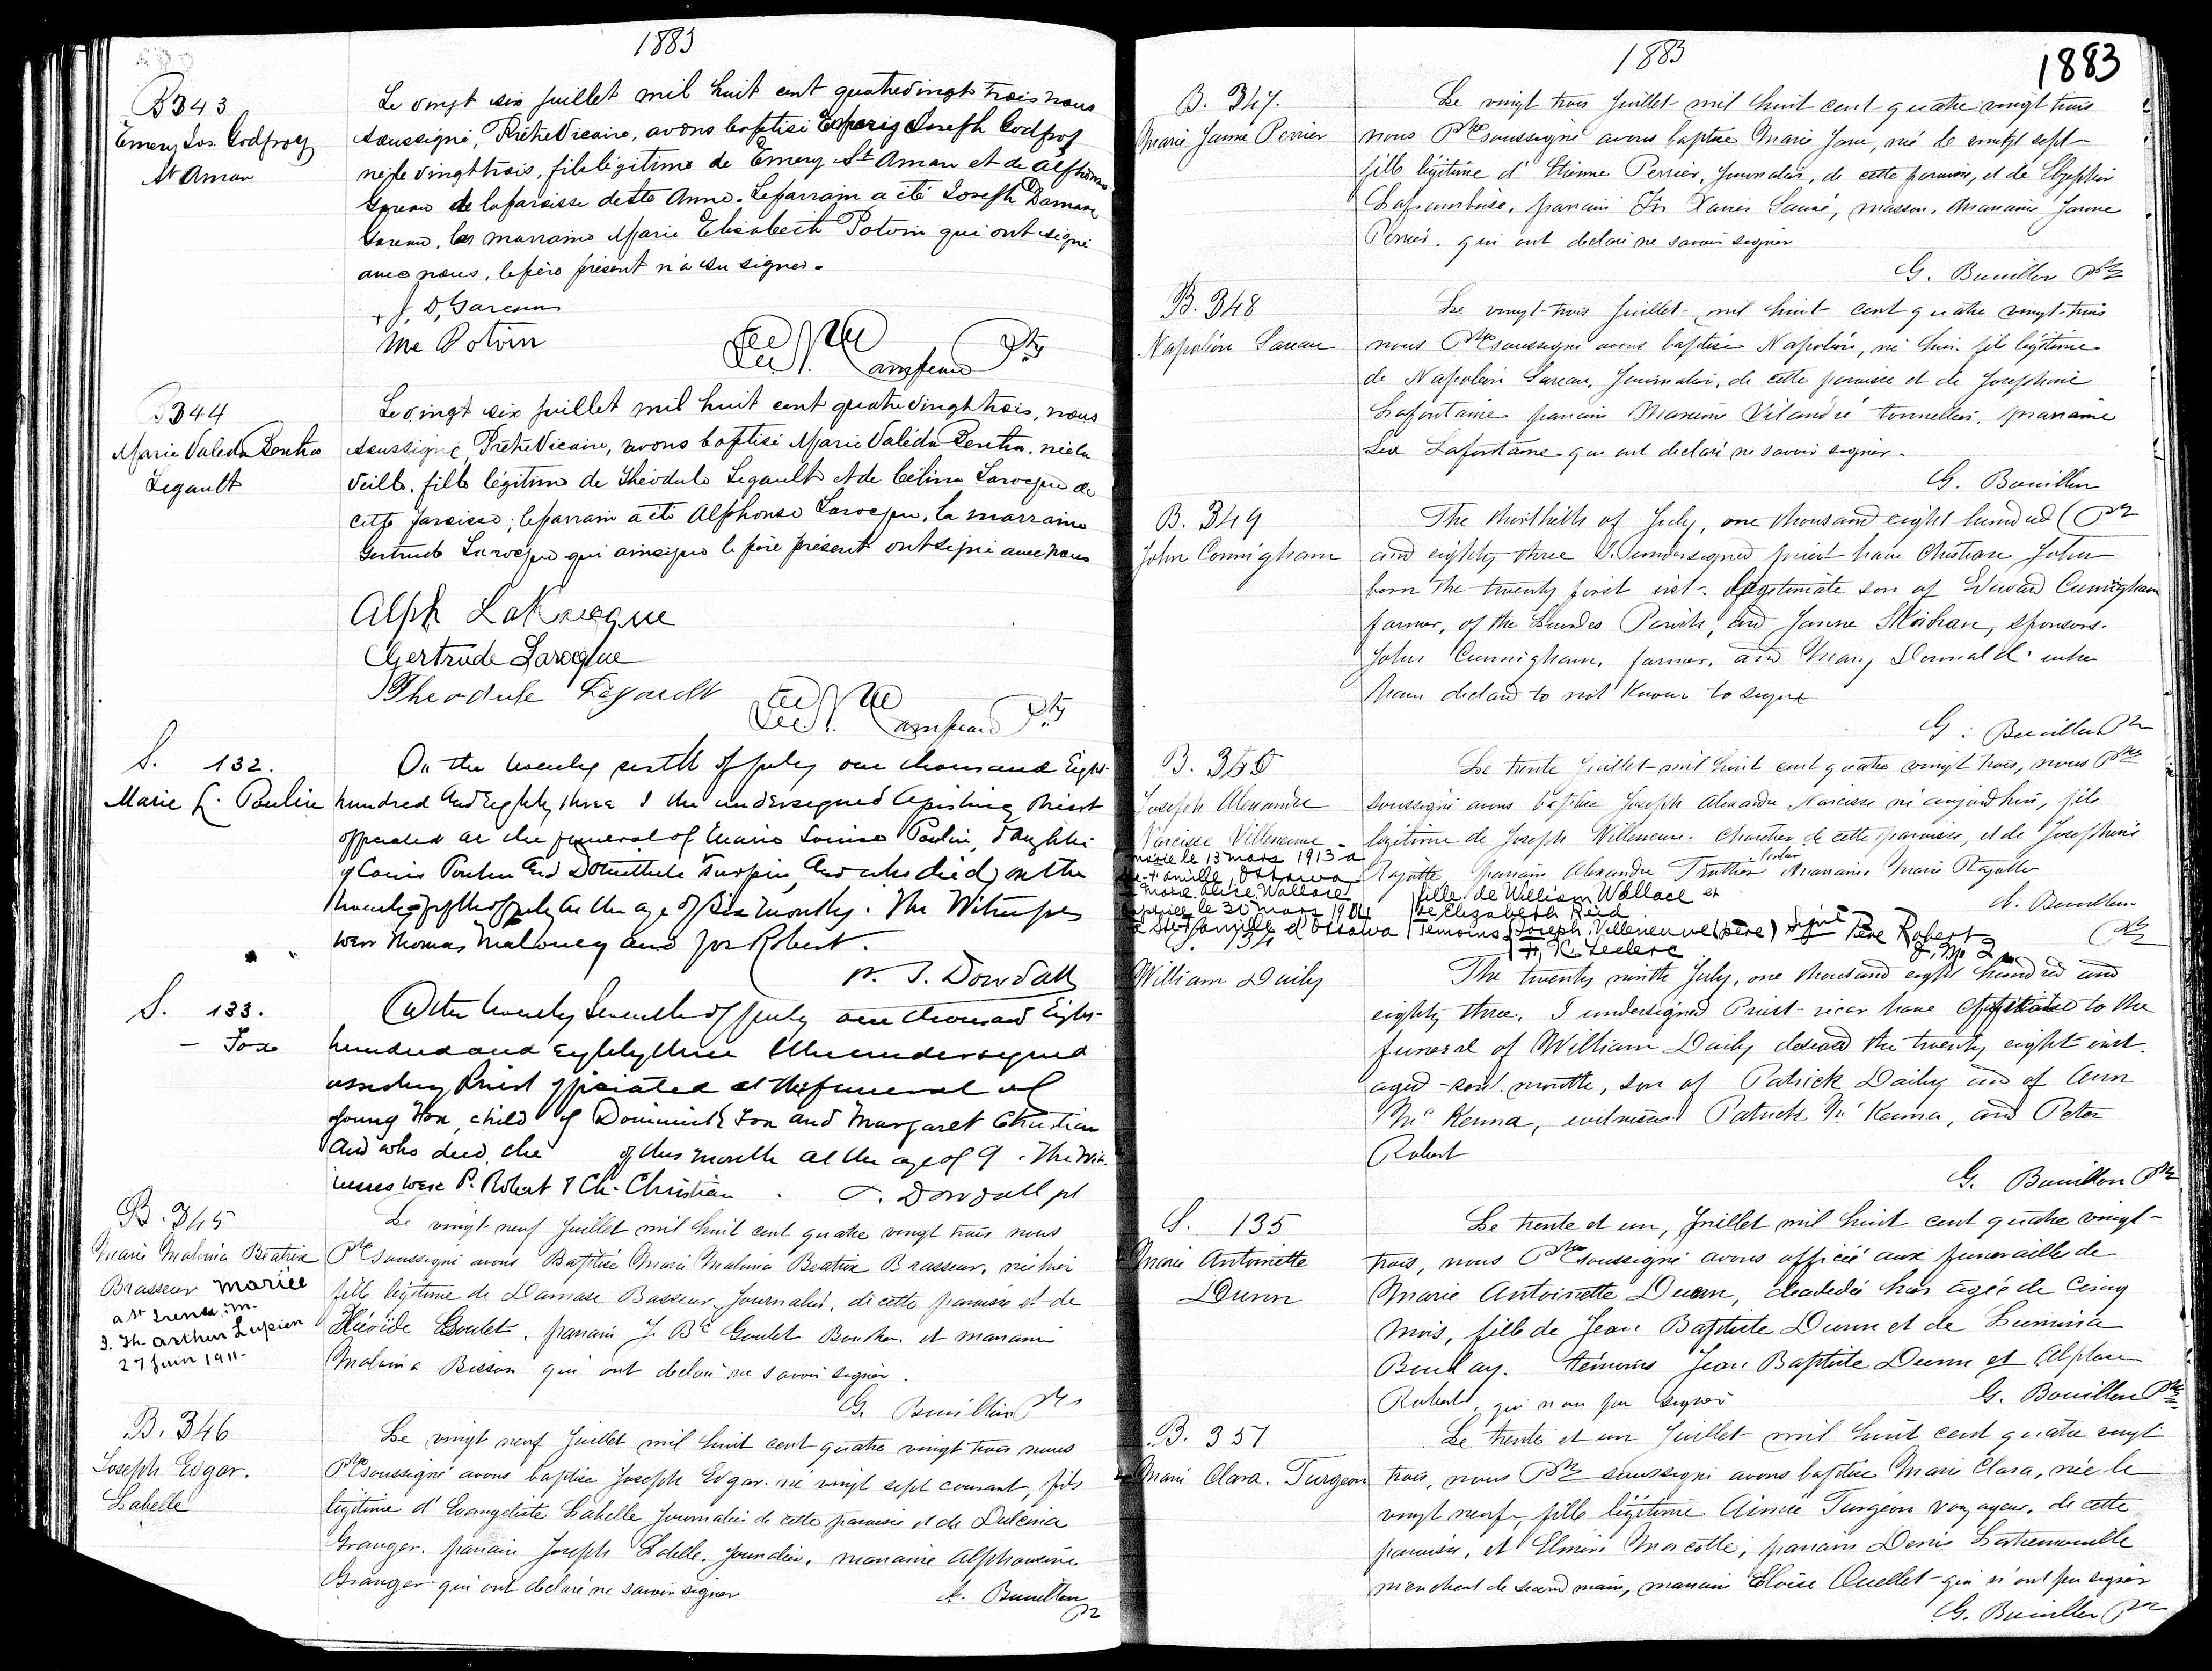 1883
B 343
Emery Jos. Godfroy
St Aman
Le vingt six Juillet mil huit cent quatrevingt trois nous
soussigné, Prêtre Vicaire, avons baptisé Joseph Godfroy
né le vingt trois, fils légitime de Emery St Aman et de Alphonsine
Gareau de la paroisse de Ste Anne. Le parrain a été Joseph Damase
Gareau, la marraine Marie Elisabeth Potvin qui ont signé
avec nous, le père présent n'a su signer.
J. D. Gareau
Me Potvin
Campeau Ptre
B 344
Marie Valeda
Legault
Le vingt six Juillet mil huit cent quatrevingt trois, nous
soussigné, Prêtre Vicaire, avons baptisé Marie Valéda née la
veille, fille légitime de Théodule Legault et de Célina Larocque de
cette paroisse; le parrain a été Alphonse Larocque, la marraine
Gertrude Larocque qui ainsi que le père présent ont signé avec nous
Alph LaRocque
Gertrude Larocque
Theodule Legault
Campeau Ptre
S. 132.
Marie L. Poulin
On the twenty sixth of July one thousand Eight
hundred and Eighty three I the undersigned assisting Priest
officiated at the funeral of Marie Louise Poulin, daughter
of Louis Poulin and Domithilde Turpin, and who died on the
twenty fifth of July at the age of six months. The Witnesses
were Thomas Maloney and Jos Robert.
P. J. Dowdall
S. 133.
— Fox
On the twenty Seventh of July one thousand Eight
hundred and Eighty three I the undersigned
assisting Priest officiated at the funeral of
young Fox, child of Dominick Fox and Margaret Christian
and who died the of this month at the age of 9. The Wit-
nesses were P. Robert & Ch. Christian . Dowdall pt
B. 345
Marie Malvina Béatrix
Brasseur mariée
a St
Arthur Lupien
27 Juin 1911
Le vingt-neuf Juillet mil huit cent quatre vingt trois nous
Ptre soussigné avons Baptisé Marie Malvina Beatrix Brasseur, née hier
fille légitime de Damase Brasseur, Journalier, de cette paroisse et de
Goulet, parrain J. Bte Goulet Boucher et marraine
Malvina Bisson qui ont déclaré ne savoir signer.
G. Bouillon Ptre
B. 346
Joseph Edgar.
Labelle
Le vingt neuf Juillet mil huit cent quatre vingt trois nous
Ptre soussigné avons baptisé Joseph Edgar né vingt sept courant, fils
légitime d'Evangeliste Labelle Journalier de cette paroisse et de Dulcina
Granger. parrain Joseph Labelle, Journalier, marraine Alphonsine
Granger qui ont déclaré ne savoir signer
G. Bouillon
Ptre
1883
1883
B. 347.
Marie Jeanne Perrier
Le vingt trois Juillet mil huit cent quatre vingt trois
nous Ptre soussigné avons baptisé Marie Jane, né le sept
fille légitime d'Etienne Perrier, Journalier, de cette paroisse, et de
Laframboise, parrain Frs Xavier Sauvé, masson, marraine Jeanne
Perrier. qui ont déclaré ne savoir signer
G. Bouillon Ptre
B. 348
Napoléon Gareau
Le vingt-trois Juillet mil huit cent quatre vingt-trois
nous Ptre soussigné avons baptisé Napoléon, né hier fils légitime
de Napoléon Gareau, Journalier, de cette paroisse et de Josephine
Lafontaine parrain Maxime Vilandré tonnelier, marraine
Lea Lafontaine qui ont déclaré ne savoir signer.
G. Bouillon
Ptre
B. 349
John Connigham
The of July, one thousand eight hundred
and eighty three I undersigned priest have Christian John
born the twenty first inst. legitimate son of Edward Cunnigham
farmer, of the Parish, and Jeanne sponsors.
John Cunnigham, farmer, and Mary Donnald who
have declard to not know to sign
G. Bouillon Ptre
B. 350
Joseph Alexandre
Narcisse Villeneuve
marié le 13 mars 1913 a
Ste Famille Ottawa
a Marie Alice Wallace
baptisée le 30 mars 1904
a Ste Famille d'Ottawa
fille de William Wallace et
de Elizabeth Reid
Temoins Joseph Villeneuve (père) Signé Père Robert
H. K. Leclerc
Le trente Juillet mil huit cent quatre vingt trois, nous Ptre
soussigné avons baptisé Joseph Alexandre Narcisse né aujourd'hui, fils
légitime de Joseph Villeneuve. Charretier de cette paroisse, et de Josephine
Rajotte parrain Alexandre Trottier marraine Marie Rajotte
G. Bouillon
Ptre
134
William Daily
The twenty ninth July, one thousand eight hundred and
eighty three, I undersigned Priest-vicar have officiated to the
funeral of William Daily deceased the twenty eight inst.
aged month, son of Patrick Daily and of Ann
Mc Kenna, witnesses Patrick Mc Kenna, and Peter
Robert
G. Bouillon Ptre
S. 135
Marie Antoinette
Dunn
Le trente et un, Juillet mil huit cent quatre vingt-
trois, nous Ptre soussigné avons officié aux funerailles de
Marie Antoinette Dunn, décédée hier agée de Cinq
mois, fille de Jean Baptiste Dunn et de Lumina
Boulay. témoins Jean Baptiste Dunn et Alphonse
Robert, qui n'ont pu signer
G. Bouillon Ptre
B. 351
Marie Clara. Turgeon
Le trente et un Juillet mil huit cent quatre vingt
trois, nous Ptre soussigné avons baptisé Marie Clara, née le
vingt neuf, fille légitime Aimée Turgeon voyageur, de cette
paroisse, et Elmire Marcotte, parrain Denis Latremouille
marchand de second main, marraine Eloise Ouellet qui n'ont pu signer
G. Bouillon Ptre